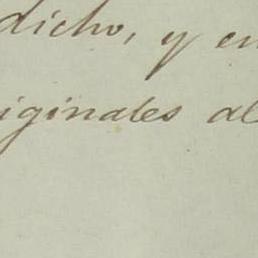 dicho, y en
iginales al